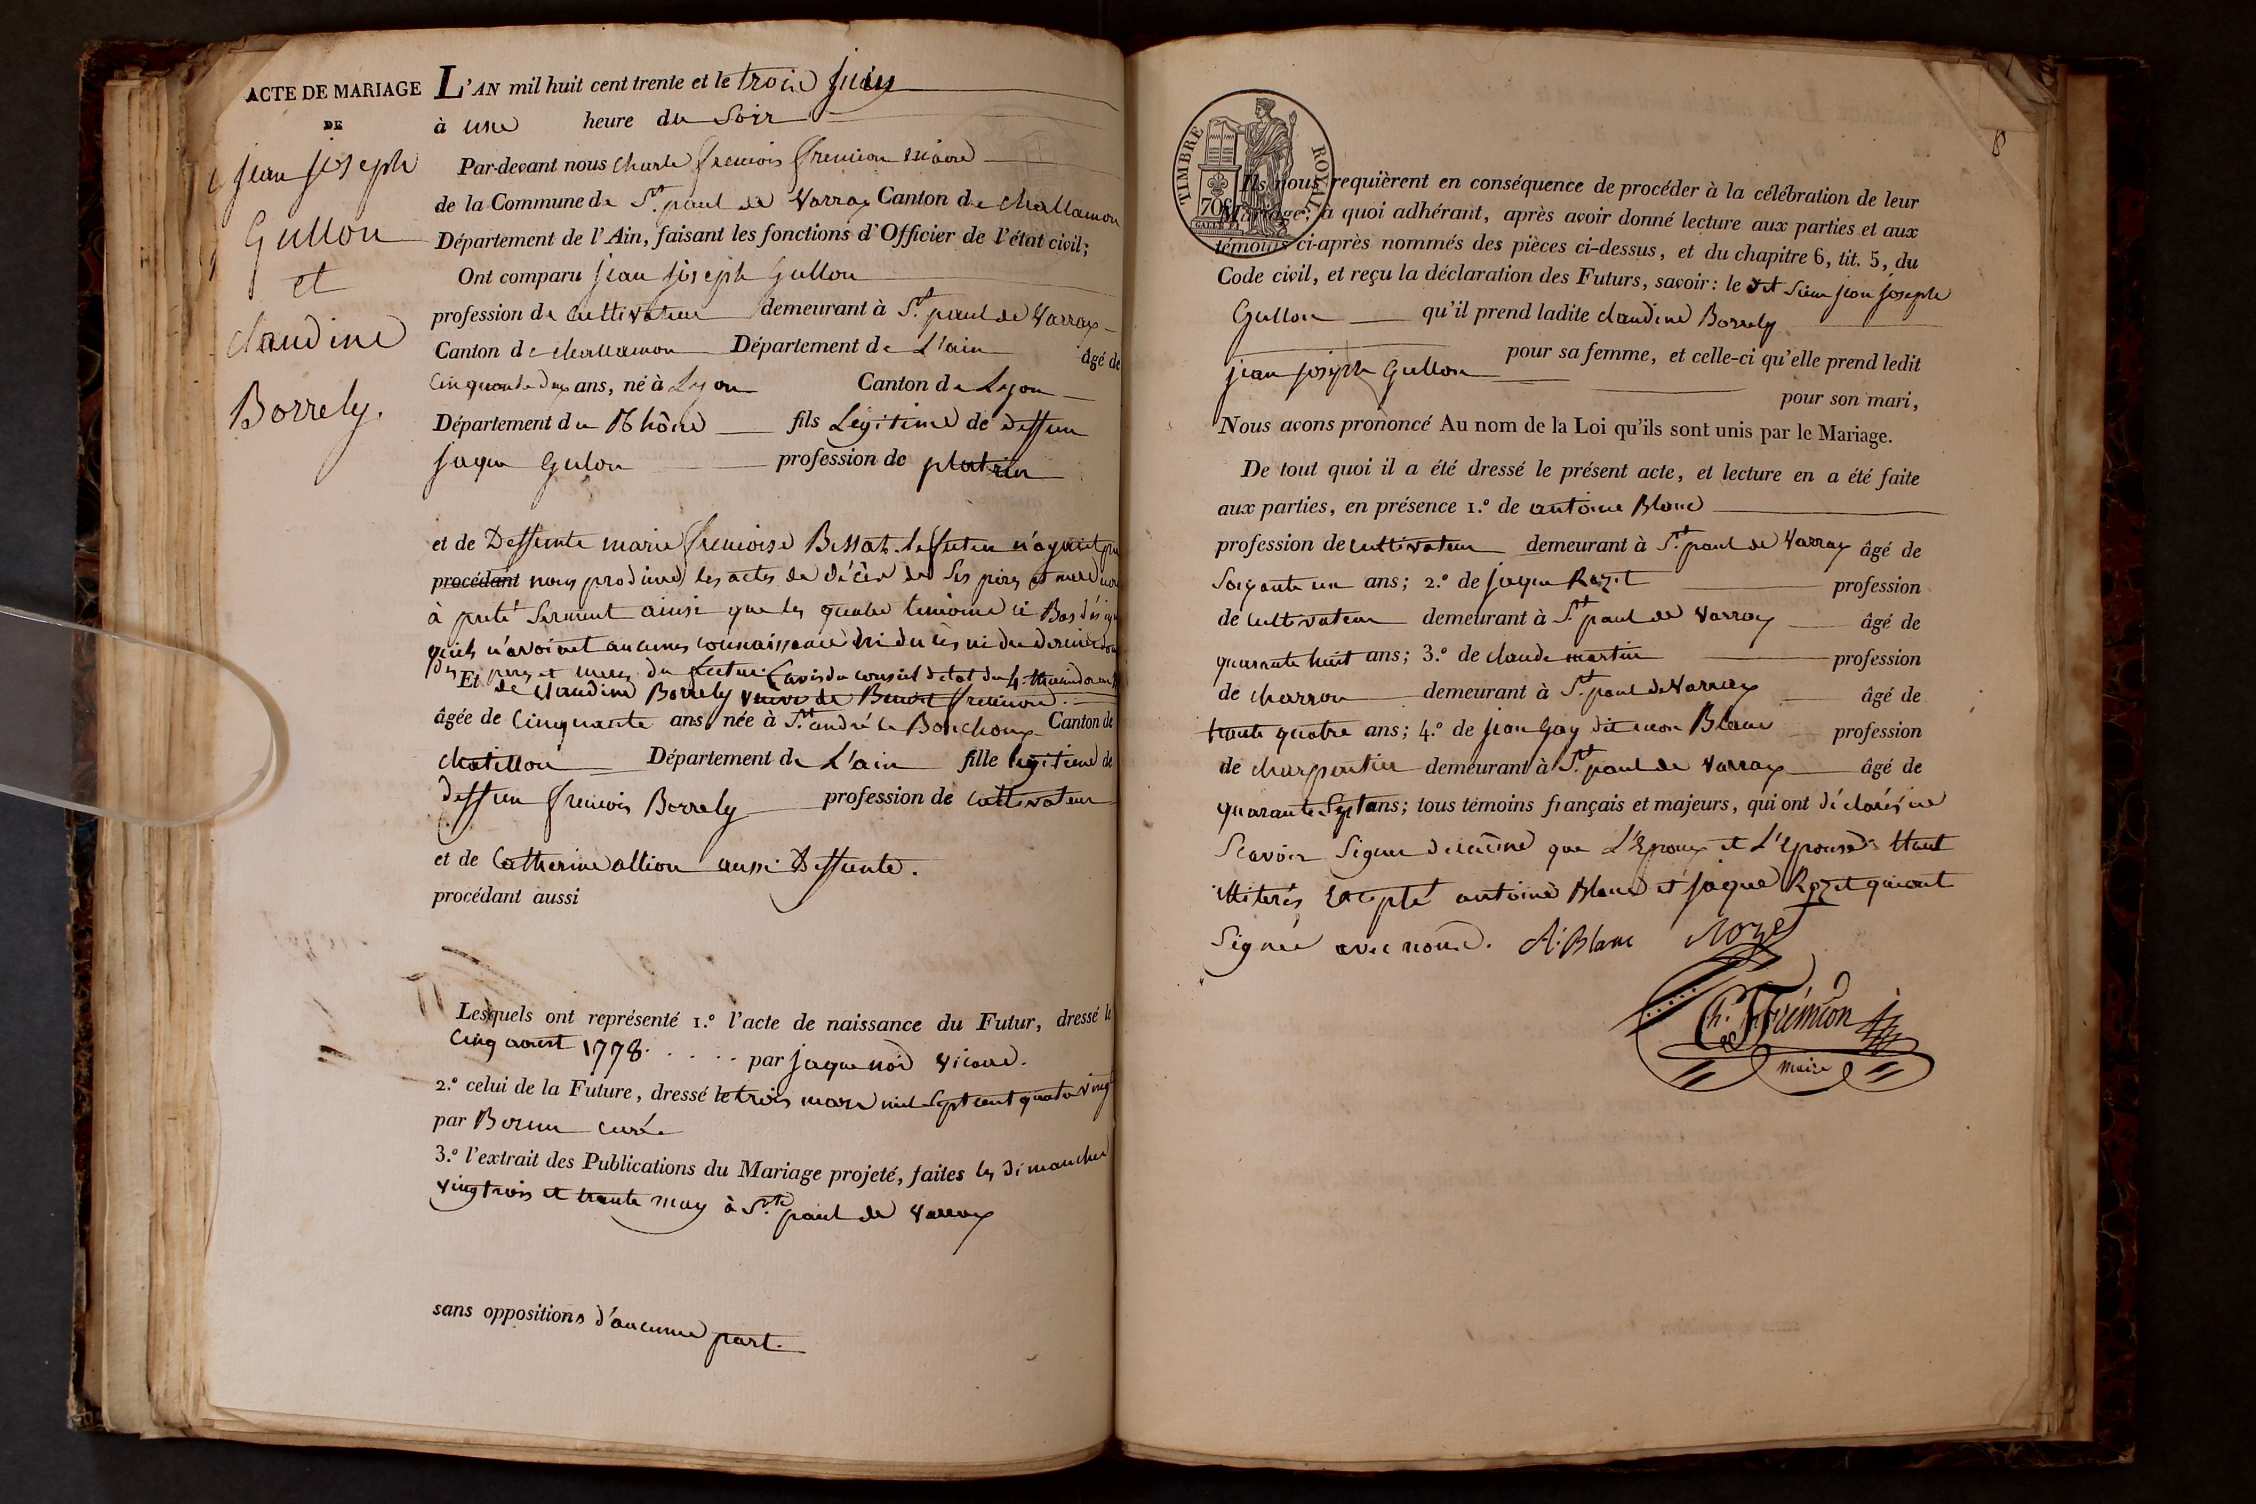 ACTE DE MARIAGE
DE
jean joseph
Gullon
et
claudine
Borrely.
L'AN mil huit cent trente et le trois juin
à une heure du Soir
Par-devant nous Charle francois fremion maire
de la Commune de St. paul de Varrax Canton de challamon
Département de l'Ain, faisant les fonctions d'Officier de l'état civil;
Ont comparu jean joseph Gullon
profession de Cultivateur demeurant à St. paul de Varrax
Canton de challamon Département de L'ain âgé de
Cinquante deux ans, né à Lyon Canton de Lyon
Département du Rhône fils Légitime de deffun
jaque Gulon profession de platrier
et de Deffunte marie francoise Bissat. le futur n'ayant pu
procédant nous produire les actes de décès de Ses pères et mere
à preté Serment ainsi que les quatre temoins ci Bas
quils n'avoint aucunes connaissance du décès ni du dernier
des peres et meres du futur (avis du conseil detat du 4. thermidor
Et de Claudine Borrely veuve de Benoit fremion.
âgée de Cinquante ans née à St. andré le Bouchoux Canton de
chatillon Département de L'ain fille legitime de
deffun francois Borrely profession de cultivateur
et de Catherine allion aussi Deffunte.
procédant aussi
Lesquels ont représenté 1.º l'acte de naissance du Futur, dressé le
Cinq aoust 1778. par jaque noid vicaire.
2.º celui de la Future, dressé le trois mars mil Sept cent quatre vingt
par curé
3.º l'extrait des Publications du Mariage projeté, faites les dimanches
vingt trois et trente may à St. paul de Varrax
sans oppositions d'aucune part.
8
TIMBRE ROYAL
70c
Ils nous requièrent en conséquence de procéder à la célébration de leur
Mariage; à quoi adhérant, après avoir donné lecture aux parties et aux
témoins ci-après nommés des pièces ci-dessus, et du chapitre 6, tit. 5, du
Code civil, et reçu la déclaration des Futurs, savoir: le dt Sieur jean joseph
Gullon qu'il prend ladite claudine Borrely
pour sa femme, et celle-ci qu'elle prend ledit
jean joseph Gullon
pour son mari,
Nous avons prononcé Au nom de la Loi qu'ils sont unis par le Mariage.
De tout quoi il a été dressé le présent acte, et lecture en a été faite
aux parties, en présence 1.º de antoine Blanc
profession de cultivateur demeurant à St. paul de Varrax âgé de
Soixante un ans; 2.º de jaque Rozet profession
de cultivateur demeurant à St. paul de Varrax âgé de
quarante huit ans; 3.º de claude martin profession
de charron demeurant à St. paul de Varrax âgé de
trante quatre ans; 4.º de jean Gay dit mon Blanc profession
de charpentier demeurant à St. paul de Varrax âgé de
quarante Sept ans; tous témoins français et majeurs, qui ont déclarés ne
Scavoir Signer de même que L'Epoux et L'Epouse Etant
illiterés Excepté antoine Blanc et jaque Rozet qui ont
Signée avec nous. A. Blanc Rozet
Ch. F. Frémion
maire